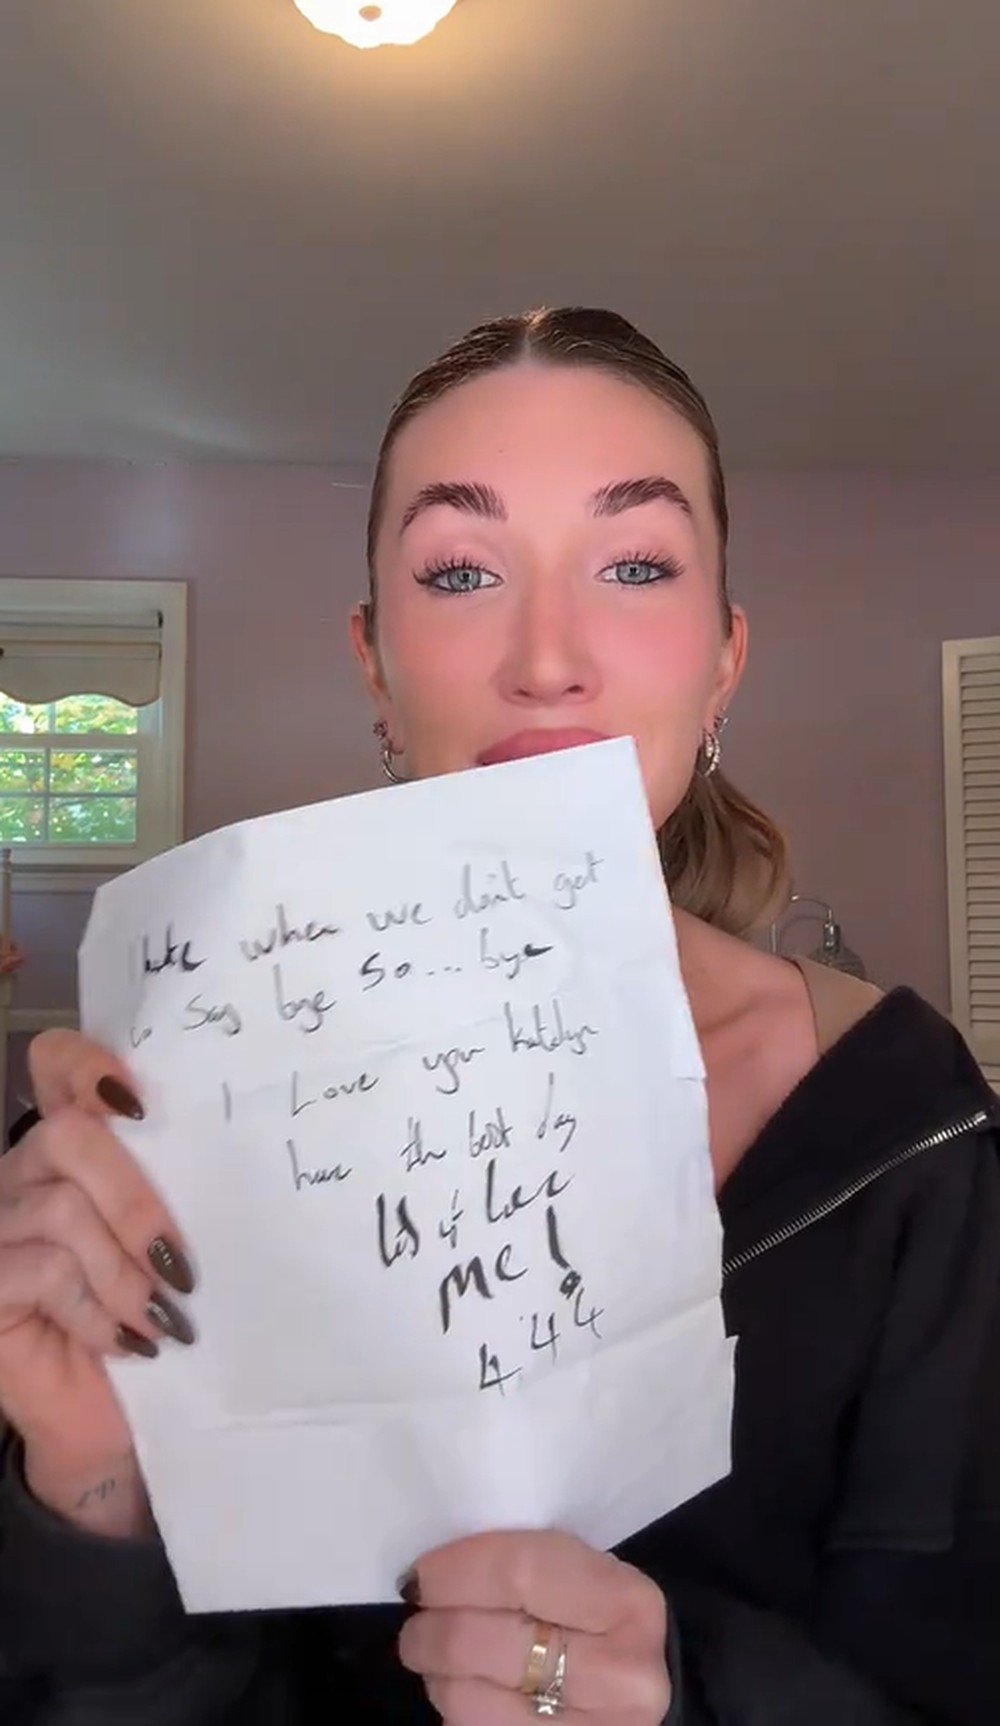 I hate when we don't get
to say bye so... bye
I Love you Katelyn
have the best day
Love
me!
4 4 4